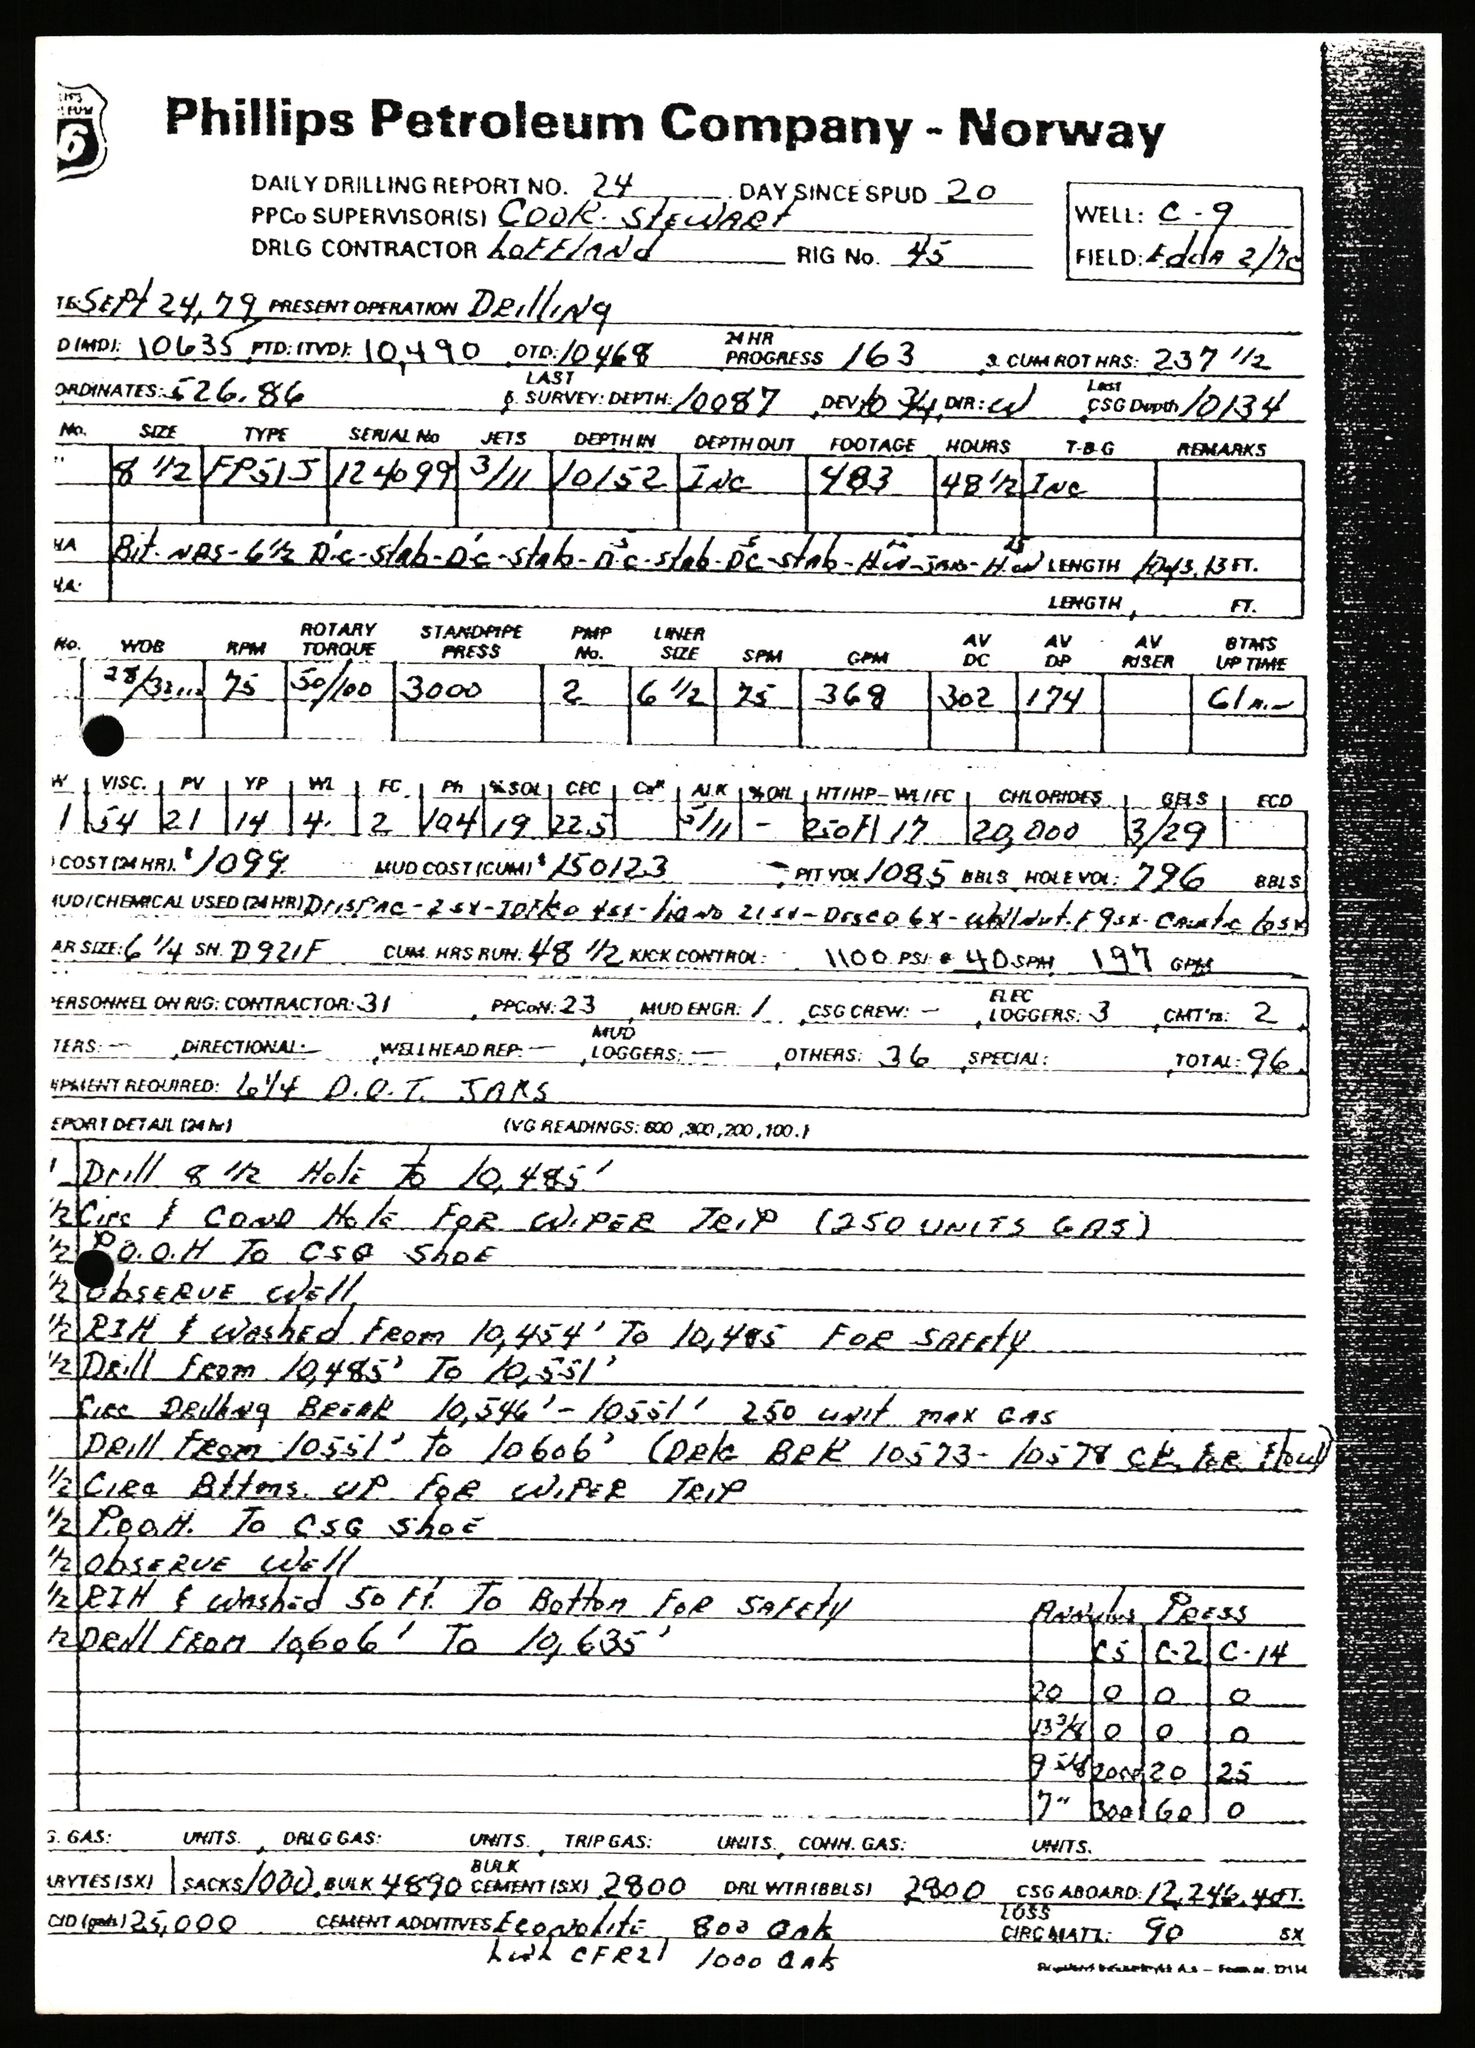 6
Phillips Petroleum Company - Norway
DAILY DRILLING REPORT NO. 24 DAY SINCE SPUD 20
PPCo SUPERVISOR(S) COOK - STEWART
WELL: C-9
DRLG CONTRACTOR LOFFLAND RIG No. 45
FIELD: Edda 2/7C
TE: SEPT 24, 79 PRESENT OPERATION DRILLING
D (MD): 10635 PTD: (TVD): 10,490 OTD: 10468 24 HR PROGRESS 163 3. CUM ROT HRS: 237 1/2
ORDINATES: 526.86 LAST SURVEY: DEPTH: 10087 DEV: 10 3/4 DIR: W Last CSG Depth 10134
No. SIZE TYPE SERIAL No JETS DEPTH IN DEPTH OUT FOOTAGE HOURS T-B-G REMARKS
8 1/2 FP51J 124099 3/11 10152 INC 483 48 1/2 INC
HA Bit - NRS - 6 1/2 D.C - Stab - D.C - Stab - D.C - Stab - DC - Stab - LENGTH FT.
HA: LENGTH FT.
No. WOB RPM ROTARY TORQUE STANDPIPE PRESS PMP No. LINER SIZE SPM GPM AV DC AV DP AV RISER BTMS UP TIME
75 50/100 3000 2 6 1/2 75 368 302 174 61
W VISC. PV YP WL FC Ph % SOL CEC Ca ALK % OIL HT/HP - WL/FC CHLORIDES GELS ECD
1 54 21 14 4. 2 10.4 19 22.5 - 250F/17 20,000 3/29
COST (24 HR). $ 1099. MUD COST (CUM) $ 150123 PIT VOL 1085 BBLS HOLE VOL: 796 BBLS
MUD/CHEMICAL USED (24 HR) DRISPAC - 2 SX - - DESCO 6X -
AR SIZE: 6 1/4 SN. D921F CUM. HRS RUN: 48 1/2 KICK CONTROL: 1100 PSI @ 40 SPM 197 GPM
PERSONNEL ON RIG: CONTRACTOR: 31 PPCoN: 23 MUD ENGR: 1 CSG CREW: - ELEC LOGGERS: 3 CMT'rs: 2
TERS: - DIRECTIONAL: - WELLHEAD REP: - MUD LOGGERS: - OTHERS: 36 SPECIAL: TOTAL: 96
IPMENT REQUIRED: 6 1/4 D.O.T. JARS
EPORT DETAIL (24 hr) (VG READINGS: 600, 300, 200, 100.)
1 Drill 8 1/2 Hole To 10,485'
1/2 Circ & COND Hole FOR WIPER TRIP (250 UNITS GAS)
1/2 P.O.O.H TO CSG SHOE
1/2 OBSERVE WELL
1/2 RIH & WASHED FROM 10,454' TO 10,485 FOR SAFETY
1/2 DRILL FROM 10,485' TO 10,551'
Circ DRILLING BREAK 10,546' - 10551' 250 UNIT MAX GAS
DRILL FROM 10551' TO 10606' (DRLG BRK 10573 - 10578 CK FOR Flow)
1/2 CIRC Bttms UP FOR WIPER TRIP
1/2 P.O.O.H. TO CSG SHOE
1/2 OBSERVE WELL
1/2 RIH & WASHED 50 Ft. TO Bottom FOR SAFETY
1/2 DRILL FROM 10,606' TO 10,635'
ANNULUS PRESS
C5 C-2 C-14
20 0 0 0
13 3/8 0 0 0
9 5/8 2000 20 25
7" 300 60 0
G. GAS: UNITS. DRLG GAS: UNITS. TRIP GAS: UNITS. CONN. GAS: UNITS.
ARYTES (SX) SACKS 1000 BULK 4890 BULK CEMENT (SX) 2800 DRL WTR (BBLS) 2800 CSG ABOARD: 12,246.40 FT.
CID (gals) 25,000 CEMENT ADDITIVES ECONOLITE 800 GALS LOSS CIRC MATL: 90 SX
CFR2L 1000 GALS